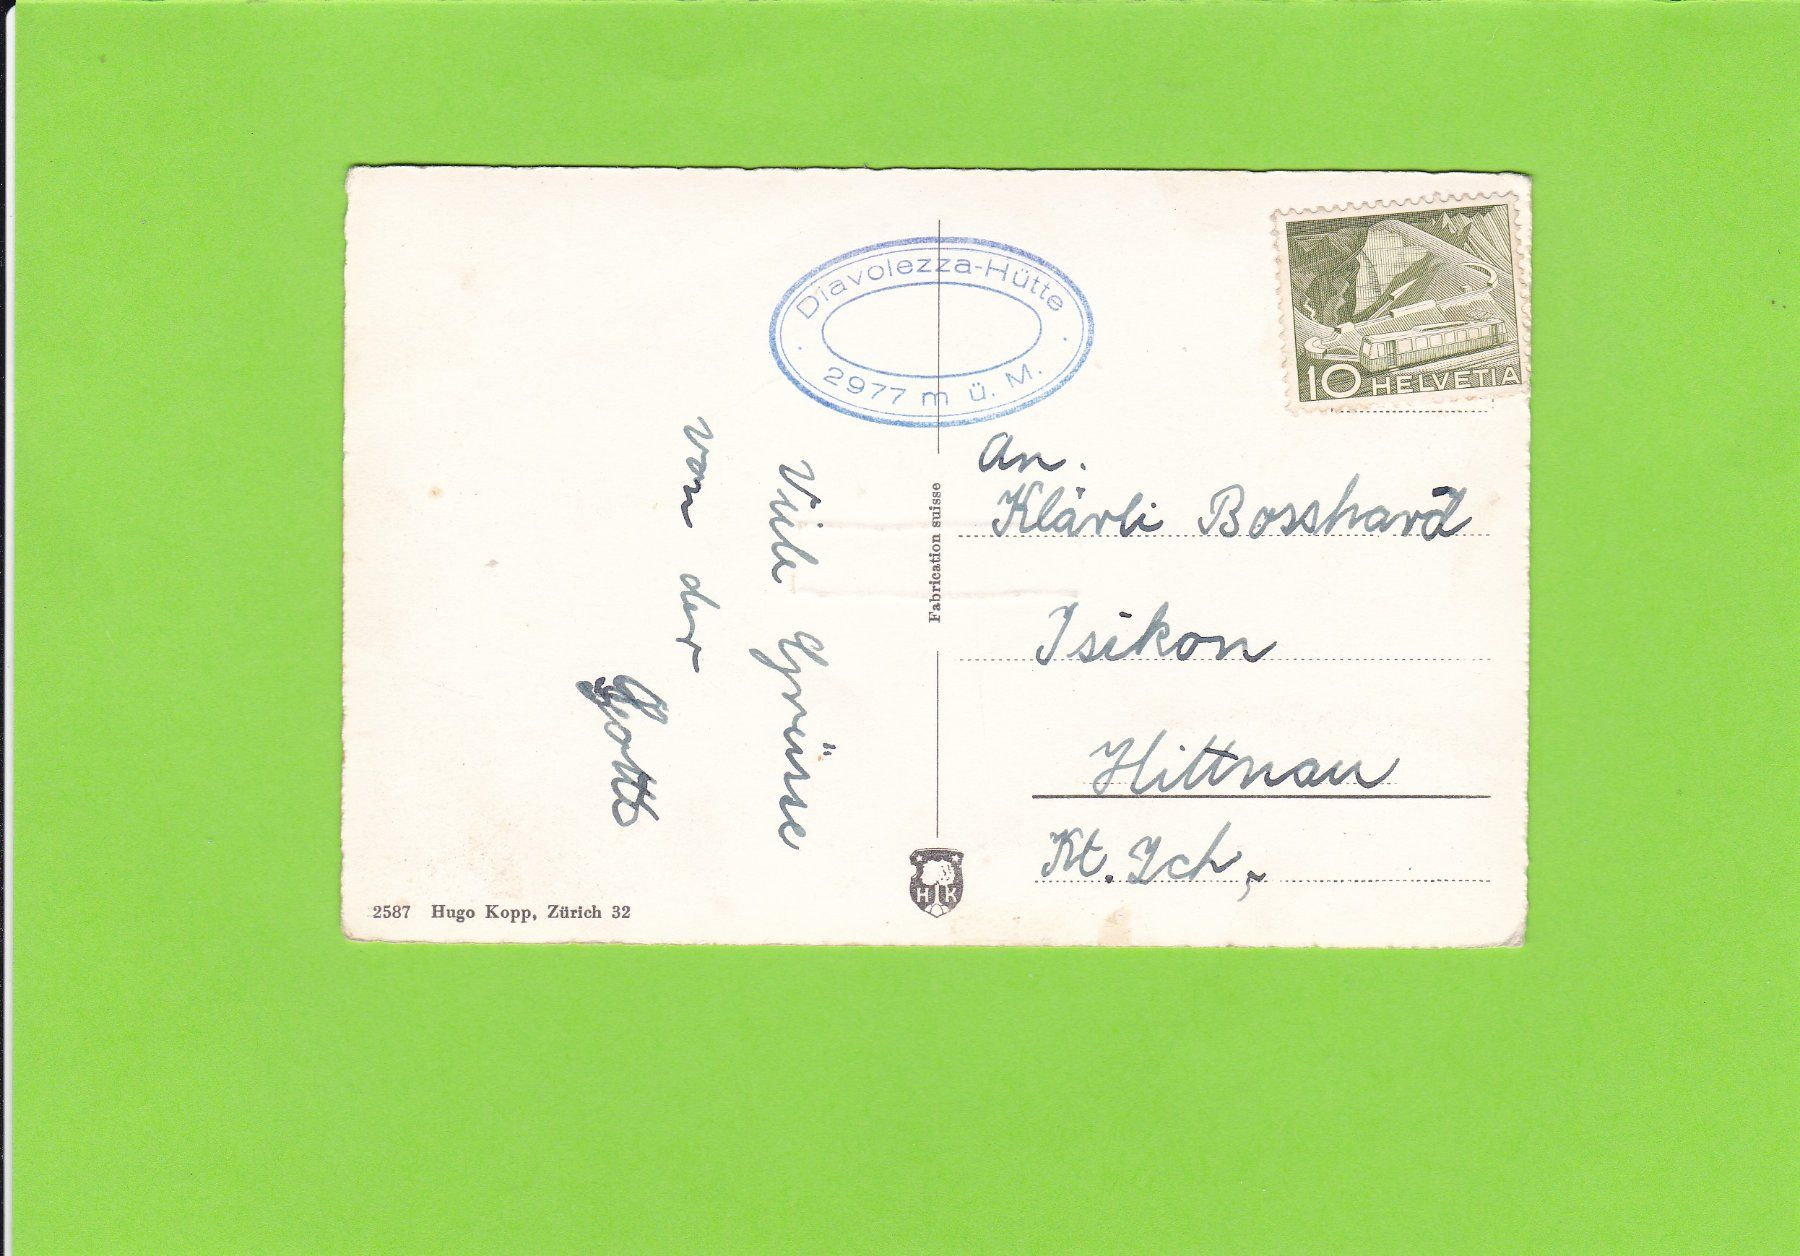 Diavolezza-Hütte
2977 m ü. M.
10 HELVETIA
Viele Grüsse
von der
Gotte
Fabrication suisse
An.
Klärli Bosshard
Isikon
Hittnau
Kt. Zch,
HK
2587 Hugo Kopp, Zürich 32